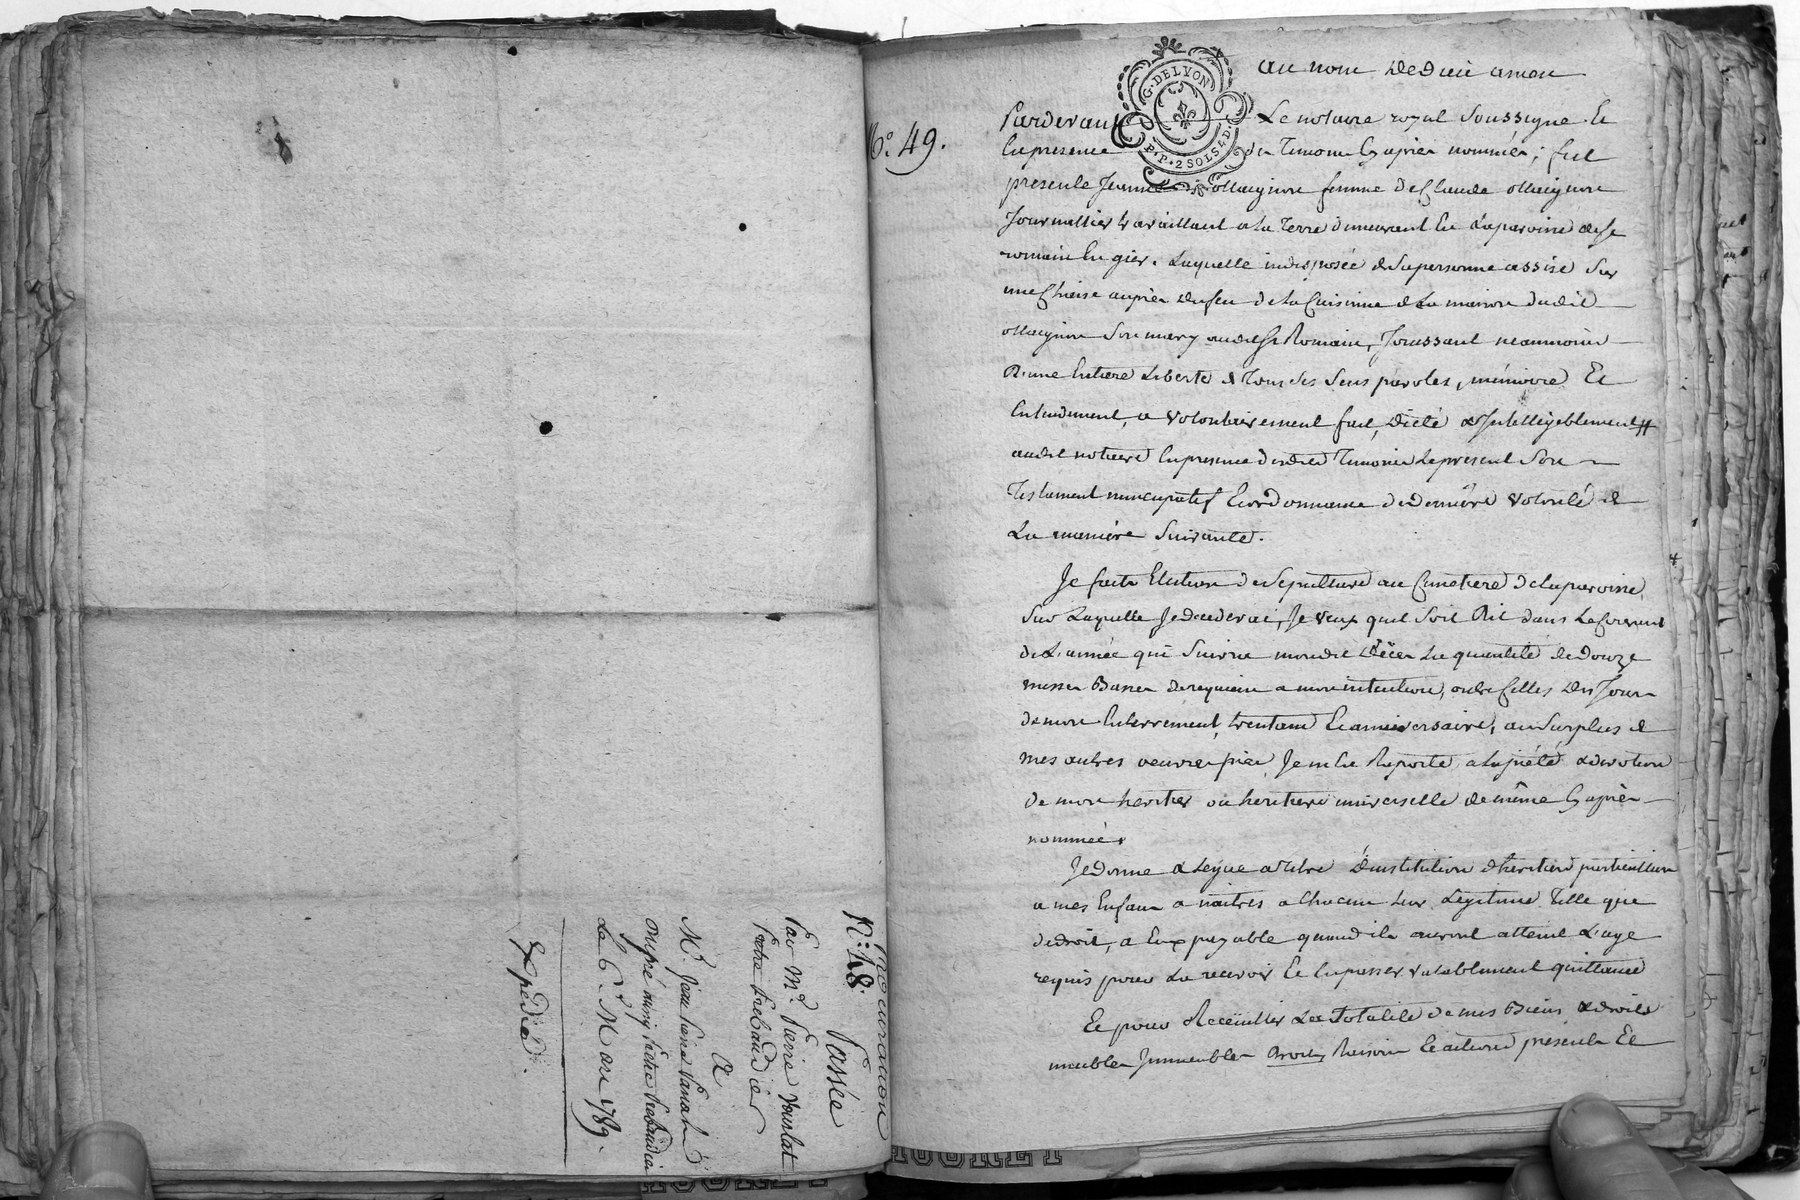 Procuration
N.° 48.
Passée
Par M.r Pierre
frere trebaudier
A
M.r Jean Pierre
Le 6. Mars 1789.
Expedié.
N.° 49.
au nom de dieu amen
G. DE LYON
P.P. 2 SOLS 4 D.
Pardevant Le notaire royal Soussigné Et
En presence des Temoins Cy aprés nommés; fut
presente Jeanne Mugnou femme de Claude Mugnou
Journallier travaillant a la Terre demeurant En La paroisse de St
romain En gier. Laquelle indisposée de Sa personne assise Sur
une Chaise auprés du feu de la Cuisinne de La maison dudit
Mugnou Son mary audit St Romain, Jouissant neanmoins
D'une Entiere Liberté de Tous Ses Sens paroles, mémoire Et
Entendement, a volontairement fait, dicté & Intelligeblement #
audit notaire En presence desdits Temoins Le present Son
Testament nuncupatif Et ordonnance de derniere volonté de
La maniére Suivante.
Je faits Election de Sepulture au Cimetiere de la paroisse
Sur Laquelle Je decederai, Je veux quil Soit Dit dans Le Courant
de L'année qui Suivra mondit Décés La quantité de Douze
messes Basses de requiem a mon intention, outre Celles du Jour
de mon Enterrement, trentain Et anniversaire, au Surplus de
mes autres oeuvres pies Je m'En Raporte a la piété & devotion
de mon heritier ou heritiere universelle de même Cy aprés
nommée.
Je Donne & Legue a titre D'institution d'heritiers particuliers
a mes Enfans a naitres a Chacun Leur Legitime Telle que
de droit, a Eux payable quand ils auront atteint L'age
requis pour La recevoir Et En passer valablement quittance
Et pour Recëuillir La Totalité de mes Biens & droits
meubles Immeubles Droits, Raisons Et actions présents Et